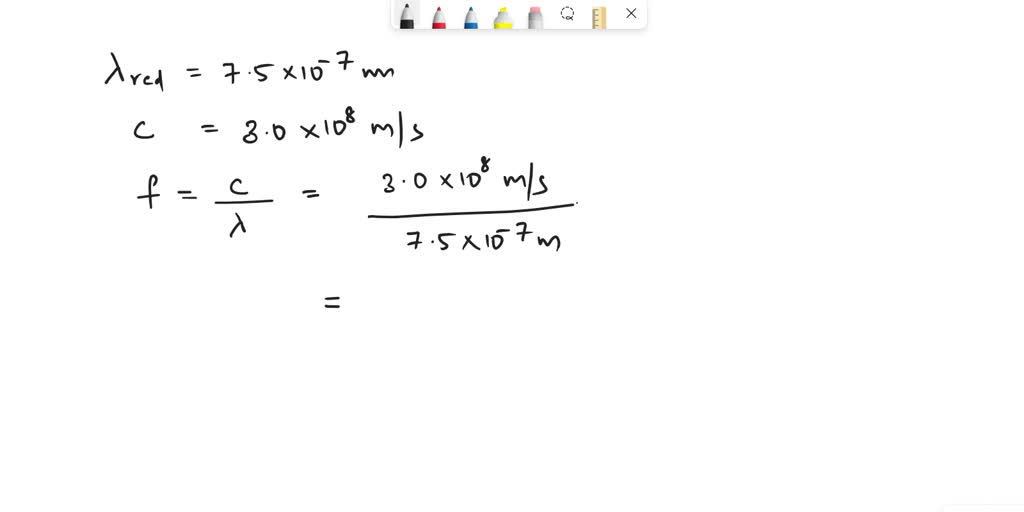 λred = 7.5 × 10⁻⁷ m
c = 3.0 × 10⁸ m/s
f = c/λ = 3.0 × 10⁸ m/s / 7.5 × 10⁻⁷ m
=